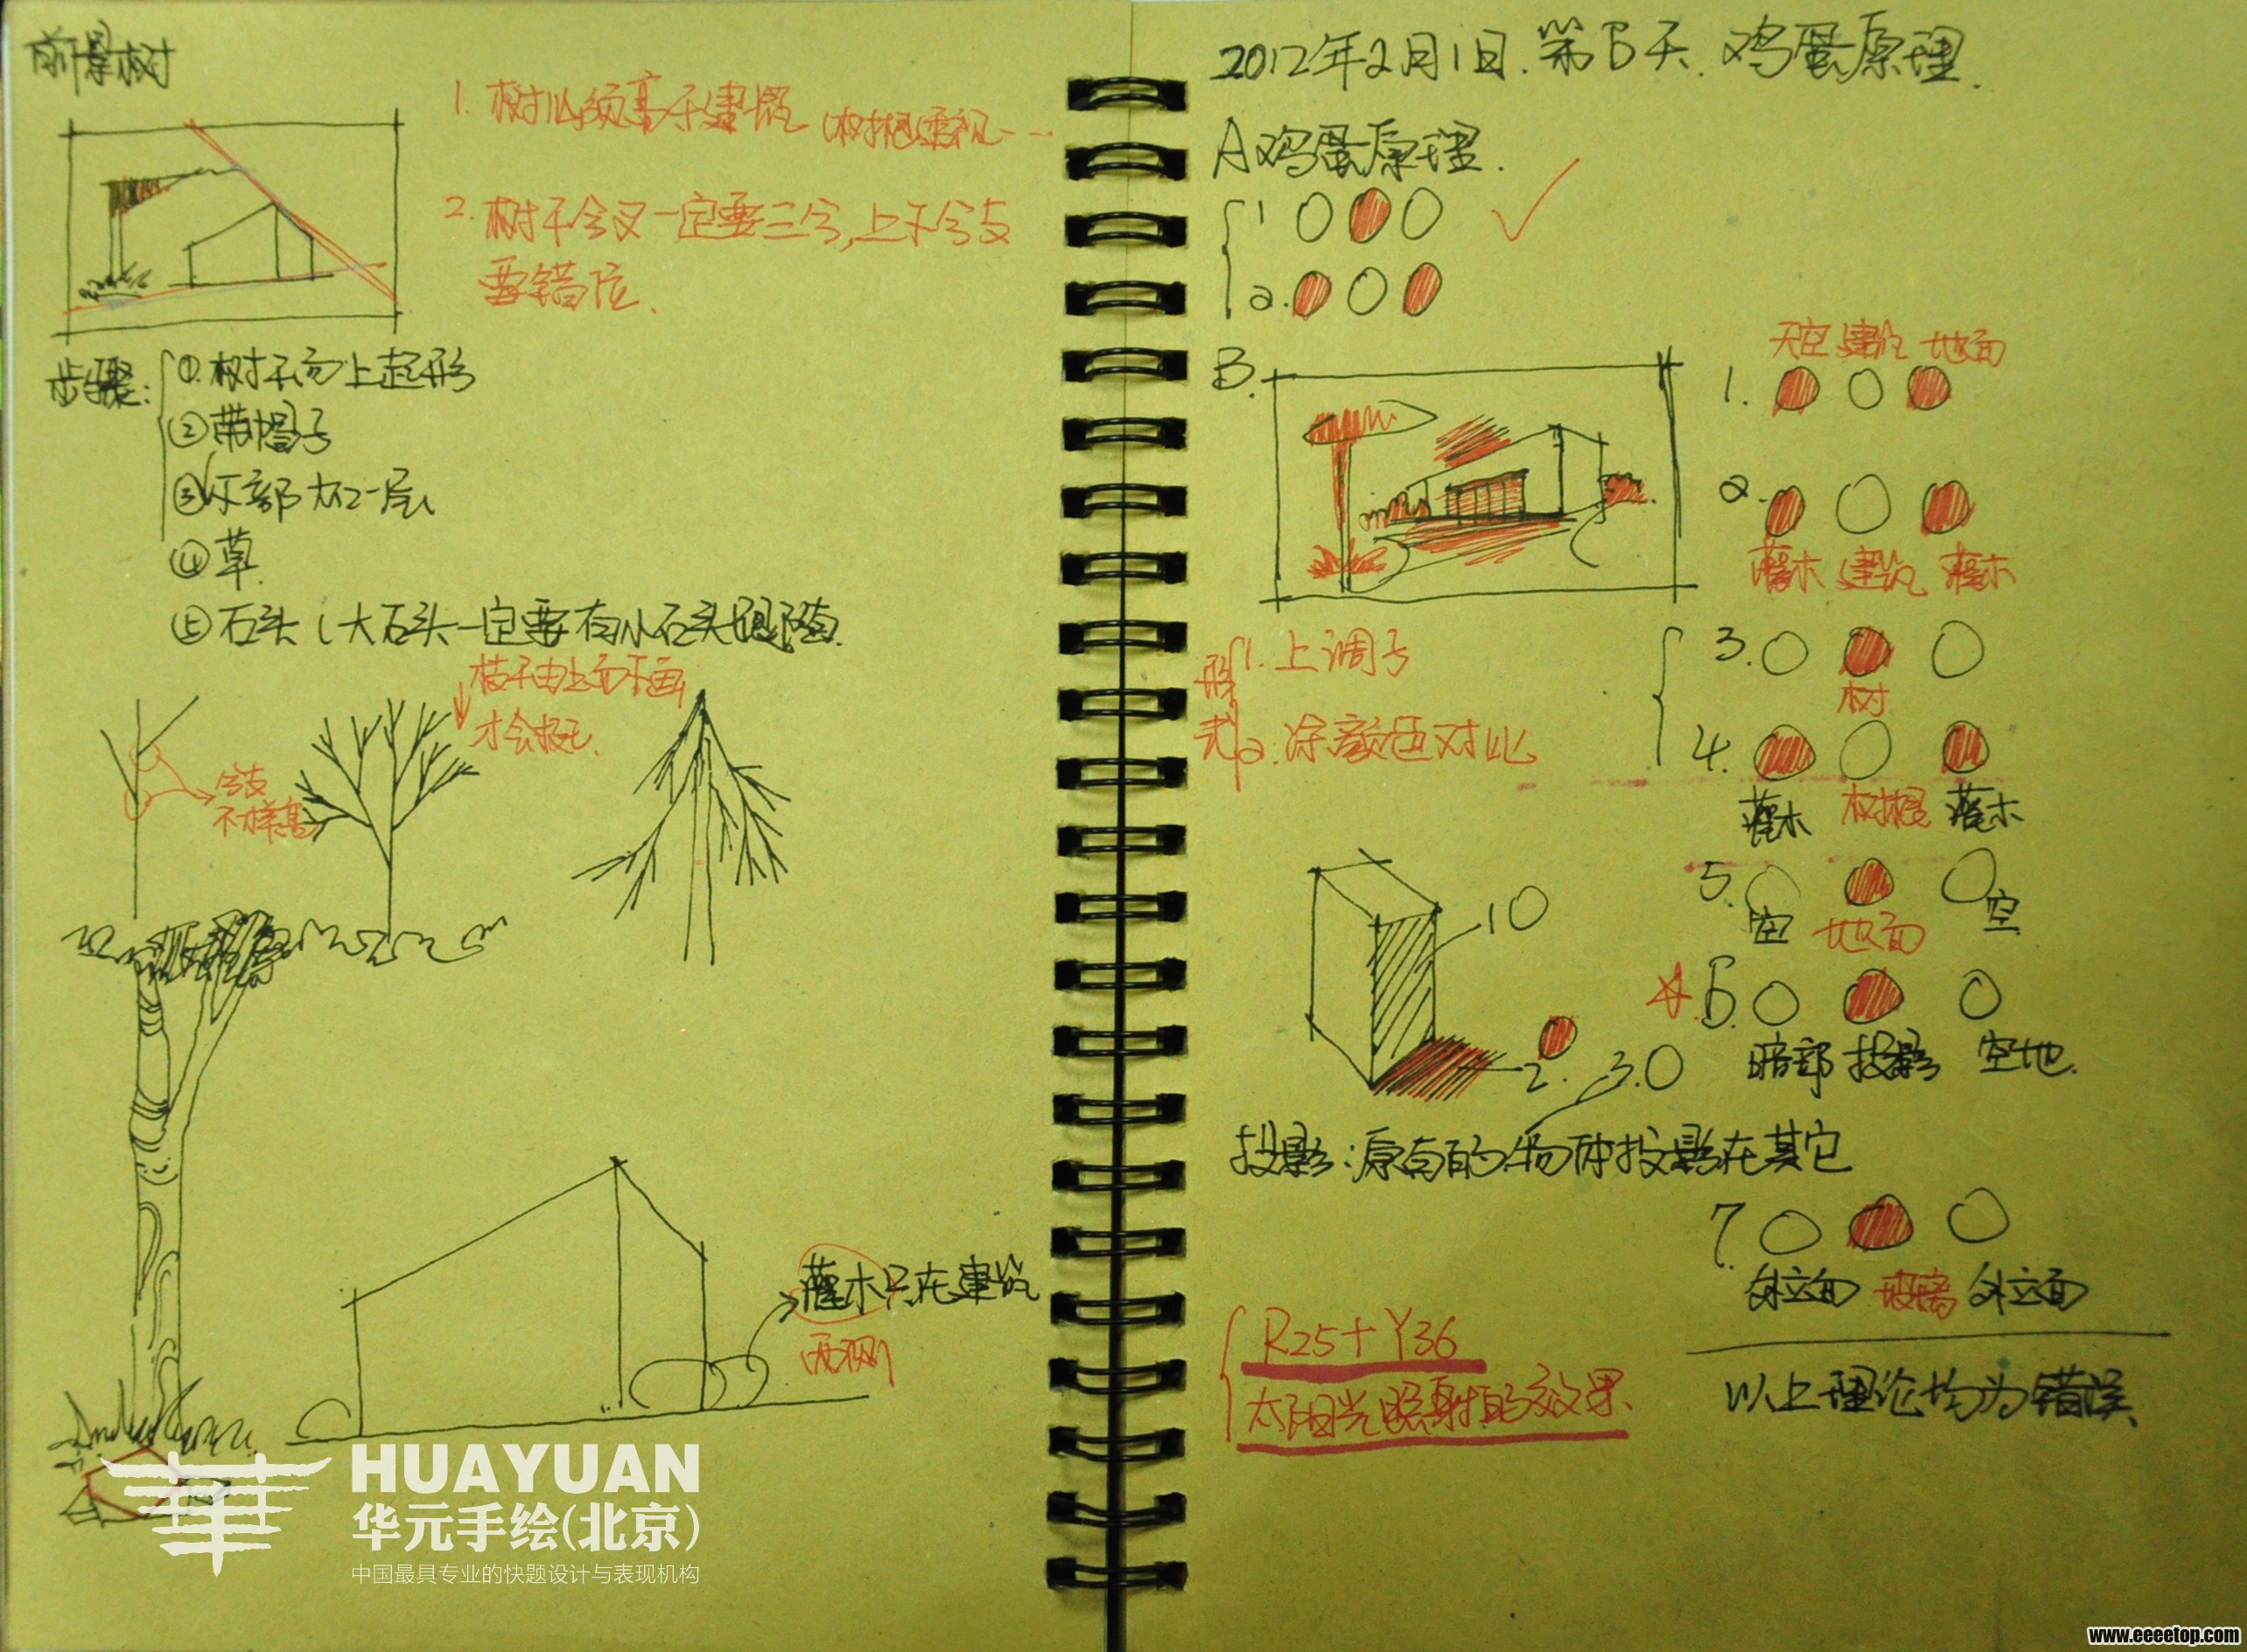 前景树
1. 树必须高于建筑 (树根透视一…
2. 树干分叉一定要三分,上下分支
要错位.
步骤:
①.树干向上起形
②带帽子
③灰部加一层
④草.
⑤石头(大石头一定要有小石头跟随.
枝干由上而下画
才会挺.
分支
不一样高
灌木只在建筑
两侧
HUAYUAN
华元手绘(北京)
中国最具专业的快题设计与表现机构
2012年2月1日.第6天.鸡蛋原理.
A鸡蛋原理.
1
2.
B.
天空 建筑 地面
1.
2.
灌木 建筑 灌木
形式
1. 上调子
2. 涂颜色对比
3.
树
4.
灌木 树根 灌木
5.
空 地面 空
6.
暗部 投影 空地.
1
2.
3.
投影:原有的物种投影在其它
7.
外立面 玻璃 外立面
R25+Y36
太阳光照射的效果.
以上理论均为错误.
www.eeeetop.com